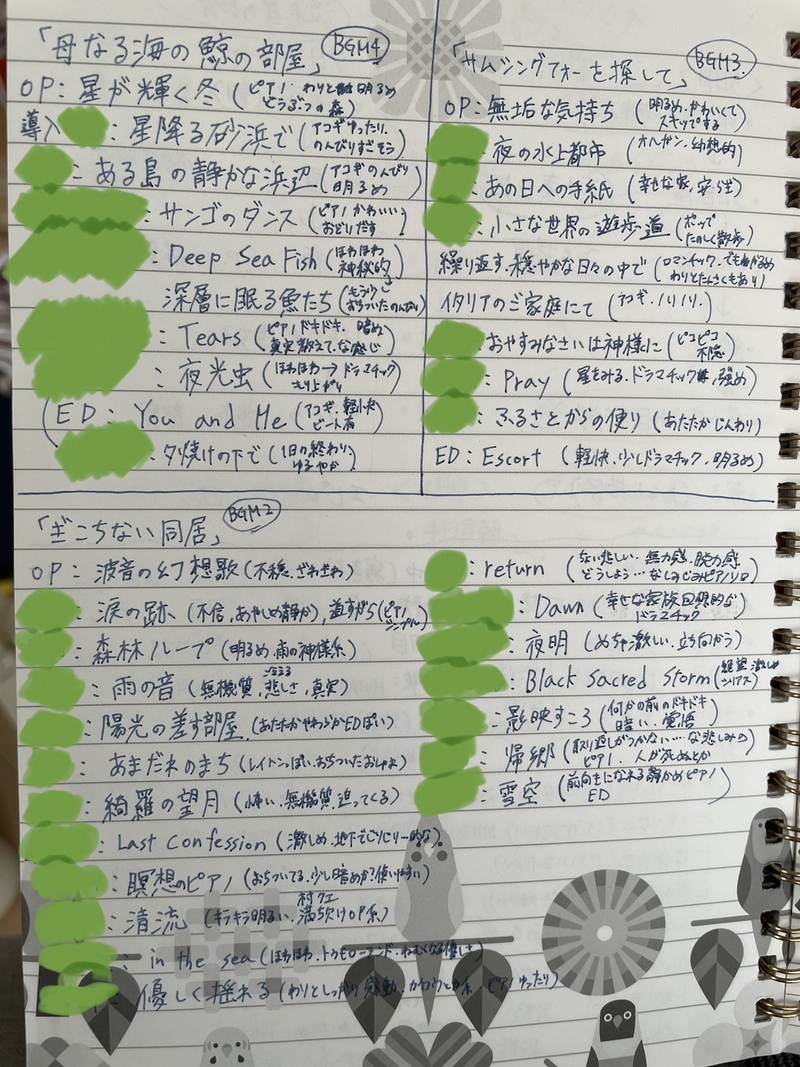 「母なる海の鯨の部屋」 BGM4
OP：星が輝く冬（ピアノ わりと明るめ
どうぶつの森）
導入：星降る砂浜で（アコギゆったり、
のんびりすぎそう）
：ある島の静かな浜辺（アコギのんびり
明るめ）
：サンゴのダンス（ピアノかわいい
おどりだす）
：Deep Sea Fish（ほわほわ
神秘的）
深層に眠る魚たち（
おちついたのんびり）
：Tears（ピアノドキドキ、暗め
真実教えて、な感じ）
：夜光虫（ほわほわ→ドラマチック
もり上がり）
（ED：You and Me（アコギ、軽快
ビート有）
：夕焼けの下で（1日の終わり、
ゆるやか）
「サムシングフォーを探して」 BGM3.
OP：無垢な気持ち（明るめ、かわいくて
スキップする）
：夜の水上都市（オルガン、幻想的）
：あの日への手紙（幸せな家、安らぎ）
：小さな世界の遊歩道（ポップ
たのしく散歩）
繰り返す、穏やかな日々の中で（ロマンチック、でも明るめ
わりとたんさくもあり）
イタリアのご家庭にて（アコギ、ノリノリ、）
：おやすみなさいは神様に（ピコピコ
不穏）
：Pray（星をみる、ドラマチック、強め）
：ふるさとからの便り（あたたかじんわり）
ED：Escort（軽快、少しドラマチック、明るめ）
「ぎこちない同居」 BGM2
OP：波音の幻想歌（不穏、ざわざわ）
：涙の跡（不信、あやしめ静か）、昔すがら（ピアノ
シンプル）
：森林ループ（明るめ、雨の神様系）
：雨の音（無機質、悲しさ、真実）
：陽光の差す部屋（あたたかやわらかEDぽい）
：あまだれのまち（レイトンぽい、おちついたおしゃれ）
：綺羅の望月（怖い、無機質、迫ってくる）
：Last Confession（激しめ、地下でごりごりー的な）
：瞑想のピアノ（おちついてる、少し暗めか？使いやすい）
：清流（キラキラ明るい、村クエ
満ち欠けOP系）
：in the sea（ほわほわ、トゥモローランド、ねむくなる優しさ）
：優しく揺れる（わりとしっかり感動、かわうとか系、ピアノゆったり）
：return（ない悲しい、無力感、脱力感
どうしよう…なしみじみピアノソロ）
：Dawn（幸せな家族回想的な
ドラマチック）
：夜明（めちゃ激しい、立ち向かう）
：Black Sacred Storm（絶望、激しめ
シリアス）
：影映すころ（何かの前のドキドキ
暗い、覚悟）
：帰郷（取り返しがつかない…な悲しみの
ピアノ、人が死ぬとか）
：雪空（前向きになれる静かめピアノ
ED）